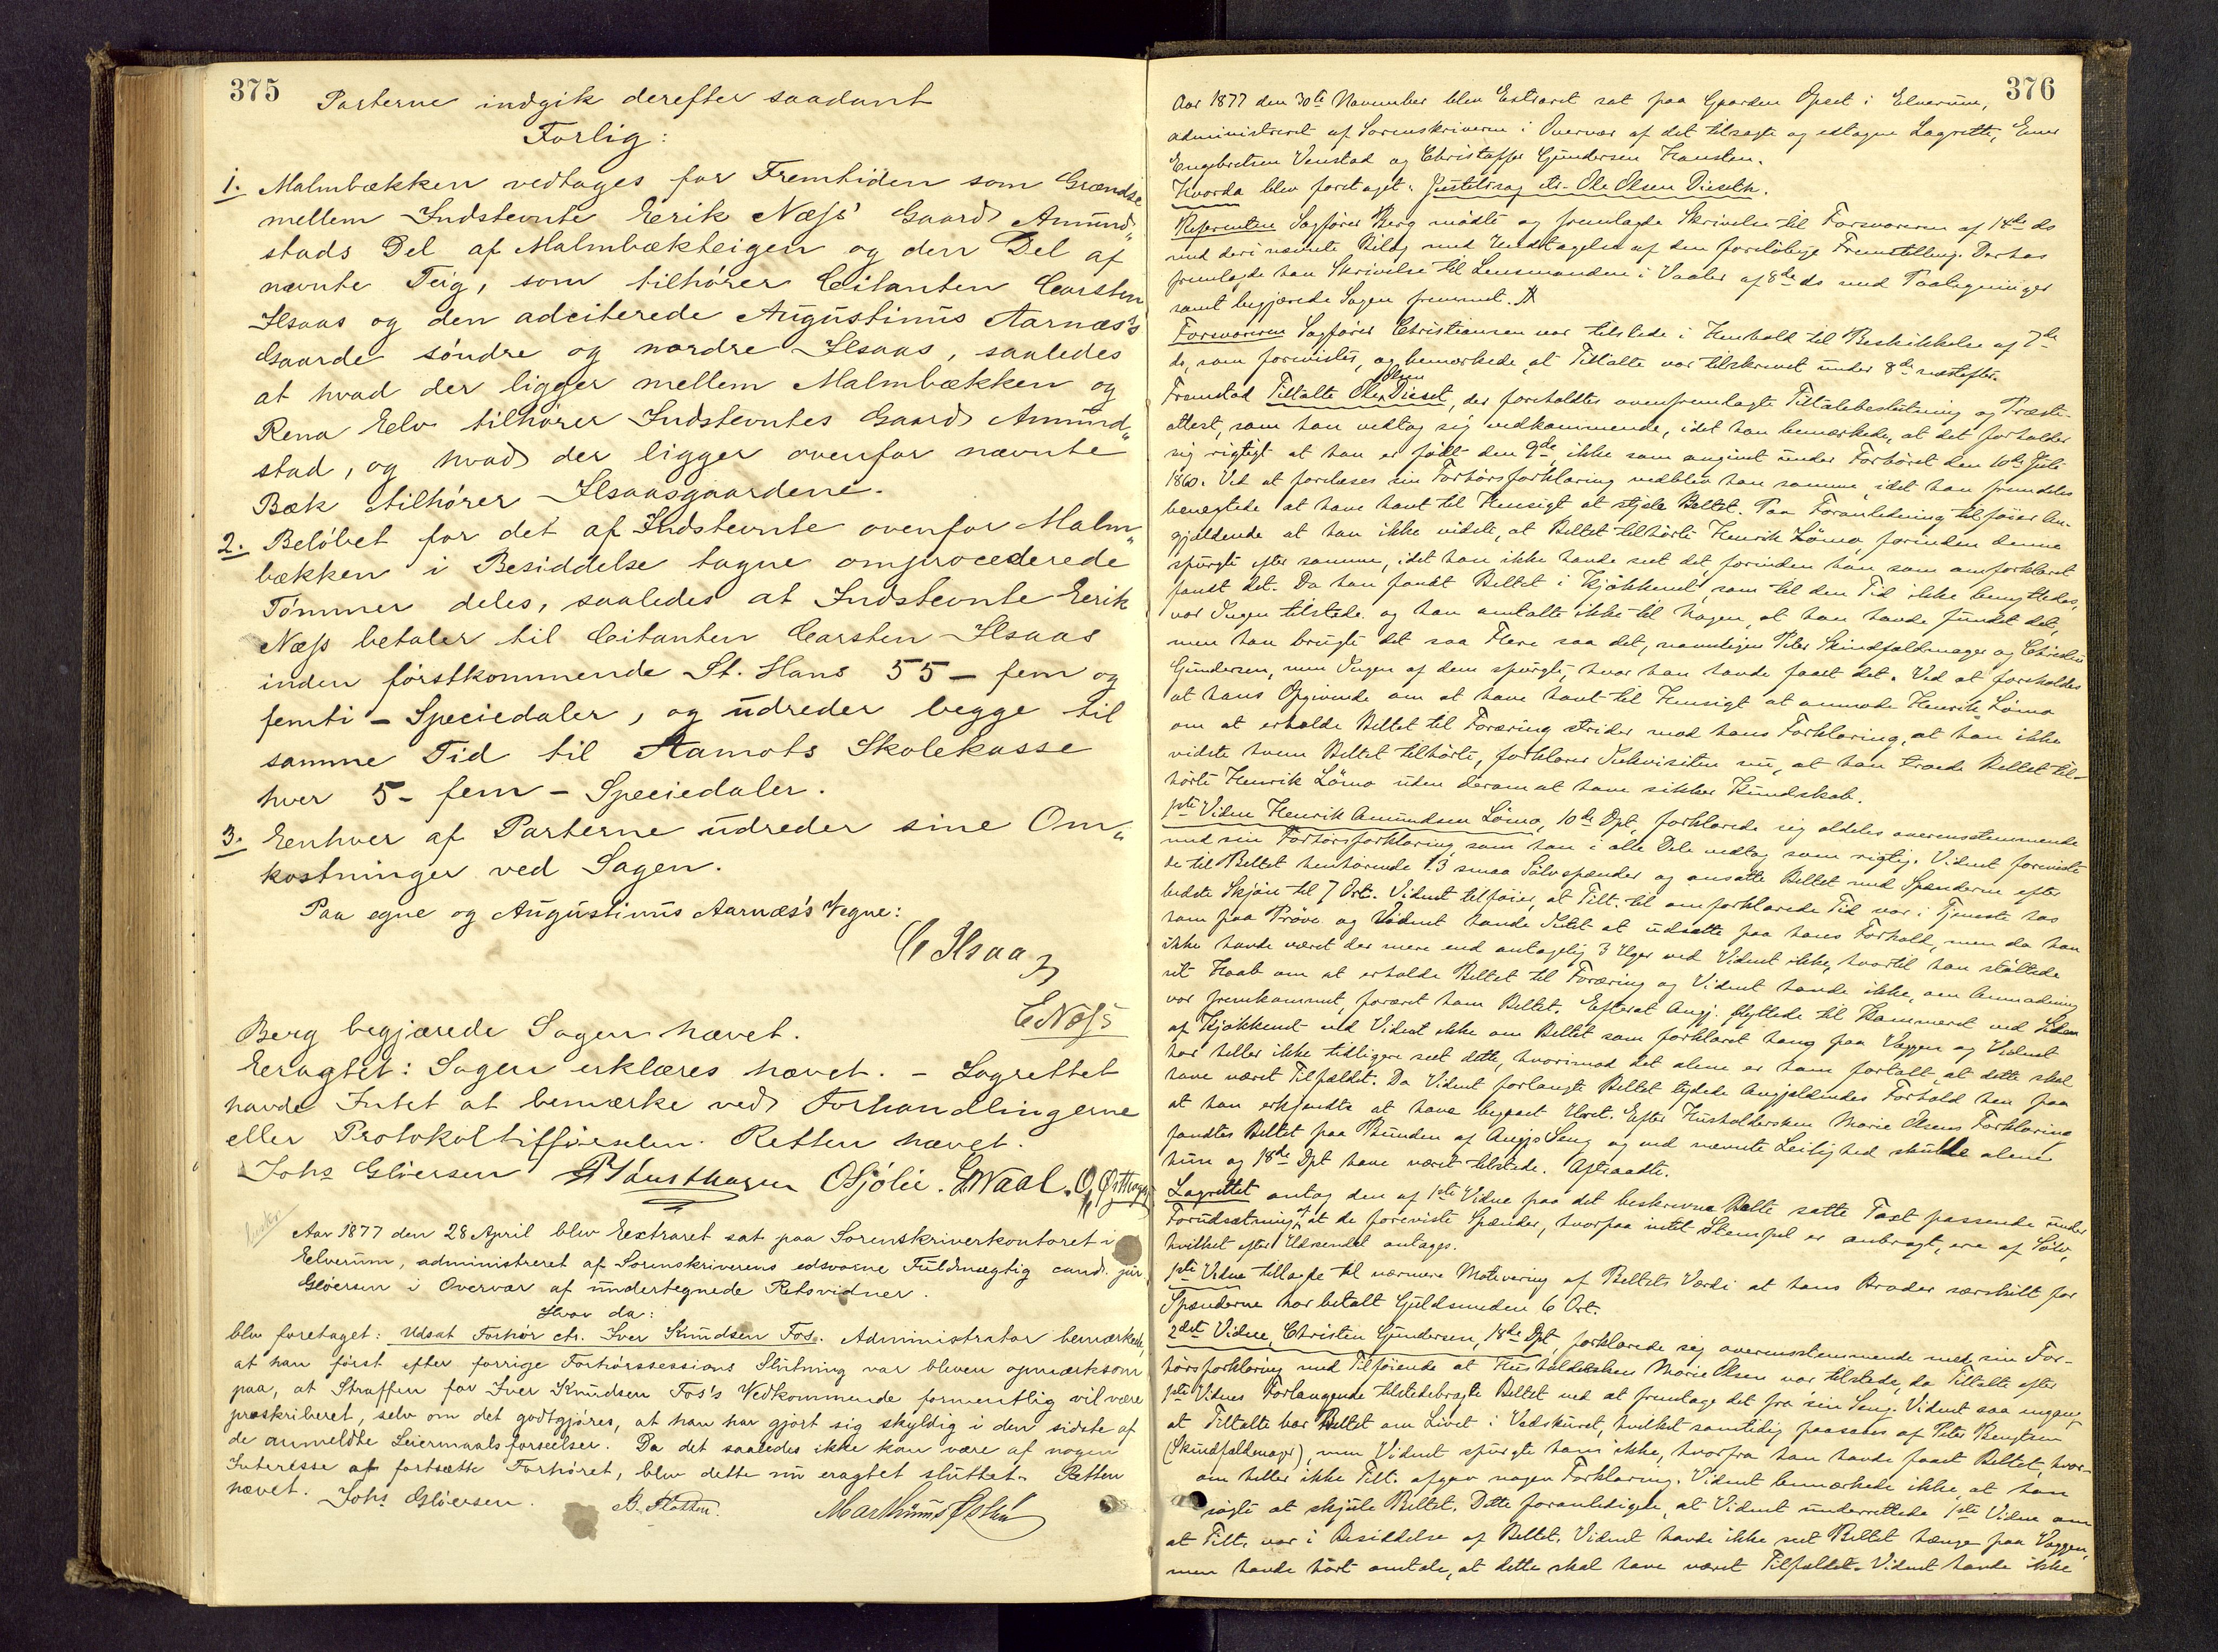 375
Parterne indgik derefter saadant
Forlig:
1. Malmbækken vedtages for Fremtiden som Grændse
mellem Indstevnte Eerik Næss' Gaard Amund„
stads Del af Malmbækteigen og den Del af
nævnte Teig, som tilhører Citanten Carsten
Ilsaas og den adciterede Augustinus Aarnæs's
Gaarde søndre og nordre Ilsaas, saaledes
at hvad der ligger mellem Malmbækken og
Rena Eelv tilhører Indstevntes Gaard Amund„
stad, og hvad der ligger ovenfor nævnte
Bæk tilhører Ilsaasgaardene.
2. Beløbet for det af Indstevnte ovenfor Malm„
bækken i Besiddelse tagne omprocederede
Tømmer deles, saaledes at Indstevnte Eerik
Næss betaler til Citanten Carsten Ilsaas
inden førstkommende St. Hans 55 – fem og
femti – Speciedaler, og udreder begge til
samme Tid til Aamots Skolekasse
hver 5 – fem – Speciedaler.
3. Eenhver af Parterne udreder sine Om„
kostninger ved Sagen.
Paa egne og Augustinus Aarnæs's Vegne:
C Ilsaas
E Næss
Berg begjærede Sagen hævet.
Eragtet: Sagen erklæres hævet. – Lagrettet
havde Intet at bemærke ved Forhandlingerne
eller Protokoltilførselen. Retten hævet.
Johs Gløersen OSjølie.
Aar 1877 den 28 April blev Eextraret sat paa Sorenskriverkontoret i
Elverum, administreret af Sorenskriverens edsvorne Fuldmægtig cand. jur.
Gløersen i Overvær af undertegnede Retsvidner.
Hvor da:
blev foretaget: Udsat Forhør ctr. Iver Knudsen Fos. Administrator bemærkede,
at han først efter forrige Forhørssessions Slutning var bleven opmærksom
paa, at Straffen for Iver Knudsen Fos's Vedkommende formentlig vil være
præskriberet, selv om det godtgjøres, at han har gjort sig skyldig i den sidste af
de anmeldte Leiermaalsforseelser. Da det saaledes ikke kan være af nogen
Interesse at fortsætte Forhøret, blev dette nu eragtet sluttet. Retten
hævet. Johs Gløersen.
376
Aar 1877 den 30te November blev Extraret sat paa Gaarden Opset i Elverum,
administreret af Sorenskriveren i Overvær af det tilsagte og edtagne Lagrette,
Engebretsen Venstad og Christoffer Gundersen
Hvorda blev foretaget: Justitssag ctr. Ole Olsen Dieseth.
Referenten Sagfører Berg mødte og fremlagde Skrivelse til Forsvareren af 14de ds
med deri nævnte Bilag med Undtagelse af den foreløbige Fremstilling. Derhos
fremlagde han Skrivelse til Lensmanden i Vaaler af 8de ds med Paategninger
samt begjærede Sagen fremmet.
Forsvareren Sagfører Christiansen var tilstede i Henhold til Beskikkelse af 7de
ds, som forevistes, og bemærkede, at Tiltalte var tilskrevet under 8de næstefter.
Fremstod Tiltalte Ole Olsen Dieset, der foreholdtes ovenfremlagte Tiltalebeslutning og Præste-
attest, som han vedtog sig vedkommende, idet han bemærkede, at det forholder
sig rigtigt at han er født den 9de, ikke som angivet under Forhøret den 10de Juli
1860. Ved at forelæses sin Forhørsforklaring vedblev han samme, idet han fremdeles
benegtede at have havt til Hensigt at stjæle Beltet. Paa Foranledning tilføier An-
gjældende at han ikke vidste, at Beltet tilhørte Henrik Lömo, førinden denne
spurgte efter samme, idet han ikke havde seet det, førinden han som omforklaret
fandt det. Da han fandt Beltet i Kjøkkenet, som til den Tid ikke benyttedes,
var Ingen tilstede og han omtalte ikke til Nogen, at han havde fundet det,
men han brugte det saa Flere saa det, navnligen Peter Skindfældmager og Christen
Gundersen, men Ingen af dem spurgte, hvor han havde faaet det. Ved at foreholdes
at hans Opgivende om at have havt til Hensigt at anmode Henrik Lömo
om at erholde Beltet til Foræring strider mod hans Forklaring, at han ikke
vidste hvem Beltet tilhørte, forklarer Inkvisiten nu, at han troede Beltet til-
hørte Henrik Lömo uden derom at have sikker Kundskab.
1ste Vidne Henrik Amundsen Lömo, 10de Dpt, forklarede sig aldeles overensstemmende
med sin Forhørsforklaring som han i alle Dele vedtog som rigtig. Vidnet foreviste
de til Beltet henhørende 13 smaa Sølvspænder og ansatte Beltet med Spænderne efter
bedste Skjøn til 7 Ort. Vidnet tilføier, at Tilt. til omforklarede Tid var i Tjeneste hos
ham paa Prøve og Vidnet havde Intet at udsætte paa hans Forhold, men da han
ikke havde været der mere end antagelig 3 Uger ved Vidnet ikke, hvortil han støttede
sit Haab om at erholde Beltet til Foræring og Vidnet havde ikke, om Anmodning
var fremkommet, foræret ham Beltet. Efterat Angj. flyttede til Kammeret ved Siden
af Kjøkkenet ved Vidnet ikke om Beltet som forklaret hang paa Væggen og Vidnet
har heller ikke tidligere seet dette, hvorimod det alene er ham fortalt, at dette skal
have været Tilfældet. Da Vidnet forlangte Beltet tydede Angjældendes Forhold hen paa
at han erkjendte at have begaaet Uret. Efter Husholdersken Marie Olsens Forklaring
fandtes Beltet paa Bunden af Angjs Seng og ved nævnte Leilighed skulde alene
hun og 18de Dpt have været tilstede. Aftraadte.
Lagrettet antog den af 1ste Vidne paa det beskrevne Belte satte Taxt passende under
Forudsætning af at de foreviste Spænder, hvorpaa intet Stempel er anbragt, ere af Sølv,
hvilket efter Udseendet antages.
1ste Vidne tillagde til nærmere Motivering af Beltets Værdi at hans Broder særskilt for
Spænderne har betalt Guldsmeden 6 Ort.
2det Vidne, Christen Gundersen, 18de Dpt, forklarede sig overensstemmende med sin For-
hørsforklaring med Tilføiende at Husholdersken Marie Olsen var tilstede, da Tiltalte efter
1ste Vidnes Forlangende tilstedebragte Beltet ved at fremtage det fra sin Seng. Vidnet saa engang
at Tiltalte bar Beltet om Livet i Vedskuret, hvilket samtidig paasaaes af Peter Bengtsen
(Skindfældmager), men Vidnet spurgte ham ikke, hvorfra han havde faaet Beltet, hvor-
om heller ikke Tilt. afgav nogen Forklaring. Vidnet bemærkede ikke, at han
søgte at skjule Beltet. Dette foranledigede, at Vidnet underrettede 1ste Vidne om
at Tilt. var i Besiddelse af Beltet. Vidnet havde ikke seet Beltet hænge paa Væggen,
men havde hørt omtale, at dette skal have været Tilfældet. Vidnet havde ikke